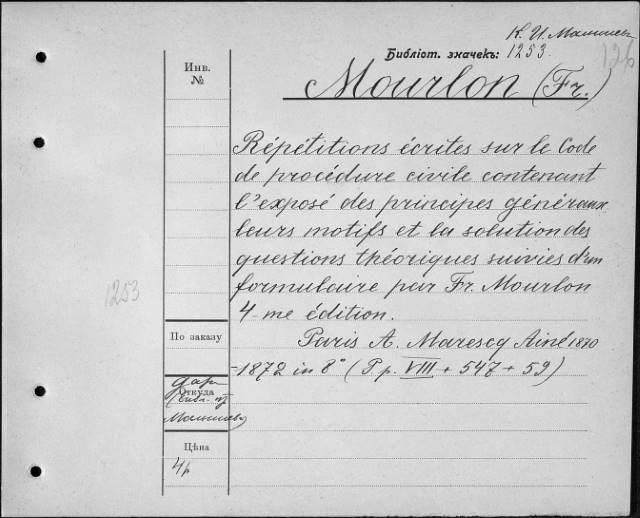 К. И. Малышев
Библіот. значекъ: 1253.
126
Инв.
№
Mourlon (Fr.)
Répétitions écrites sur le Code
de procédure civile contenant
l'exposé des principes généraux,
leurs motifs et la solution des
questions théoriques suivies d'un
formulaire par Fr. Mourlon
4-me édition.
1253
По заказу
Paris A. Marescq Ainé 1870
=1872 in 8° (Pp. VIII + 547 + 59)
дар
Откуда
Малышева
Цѣна
4р